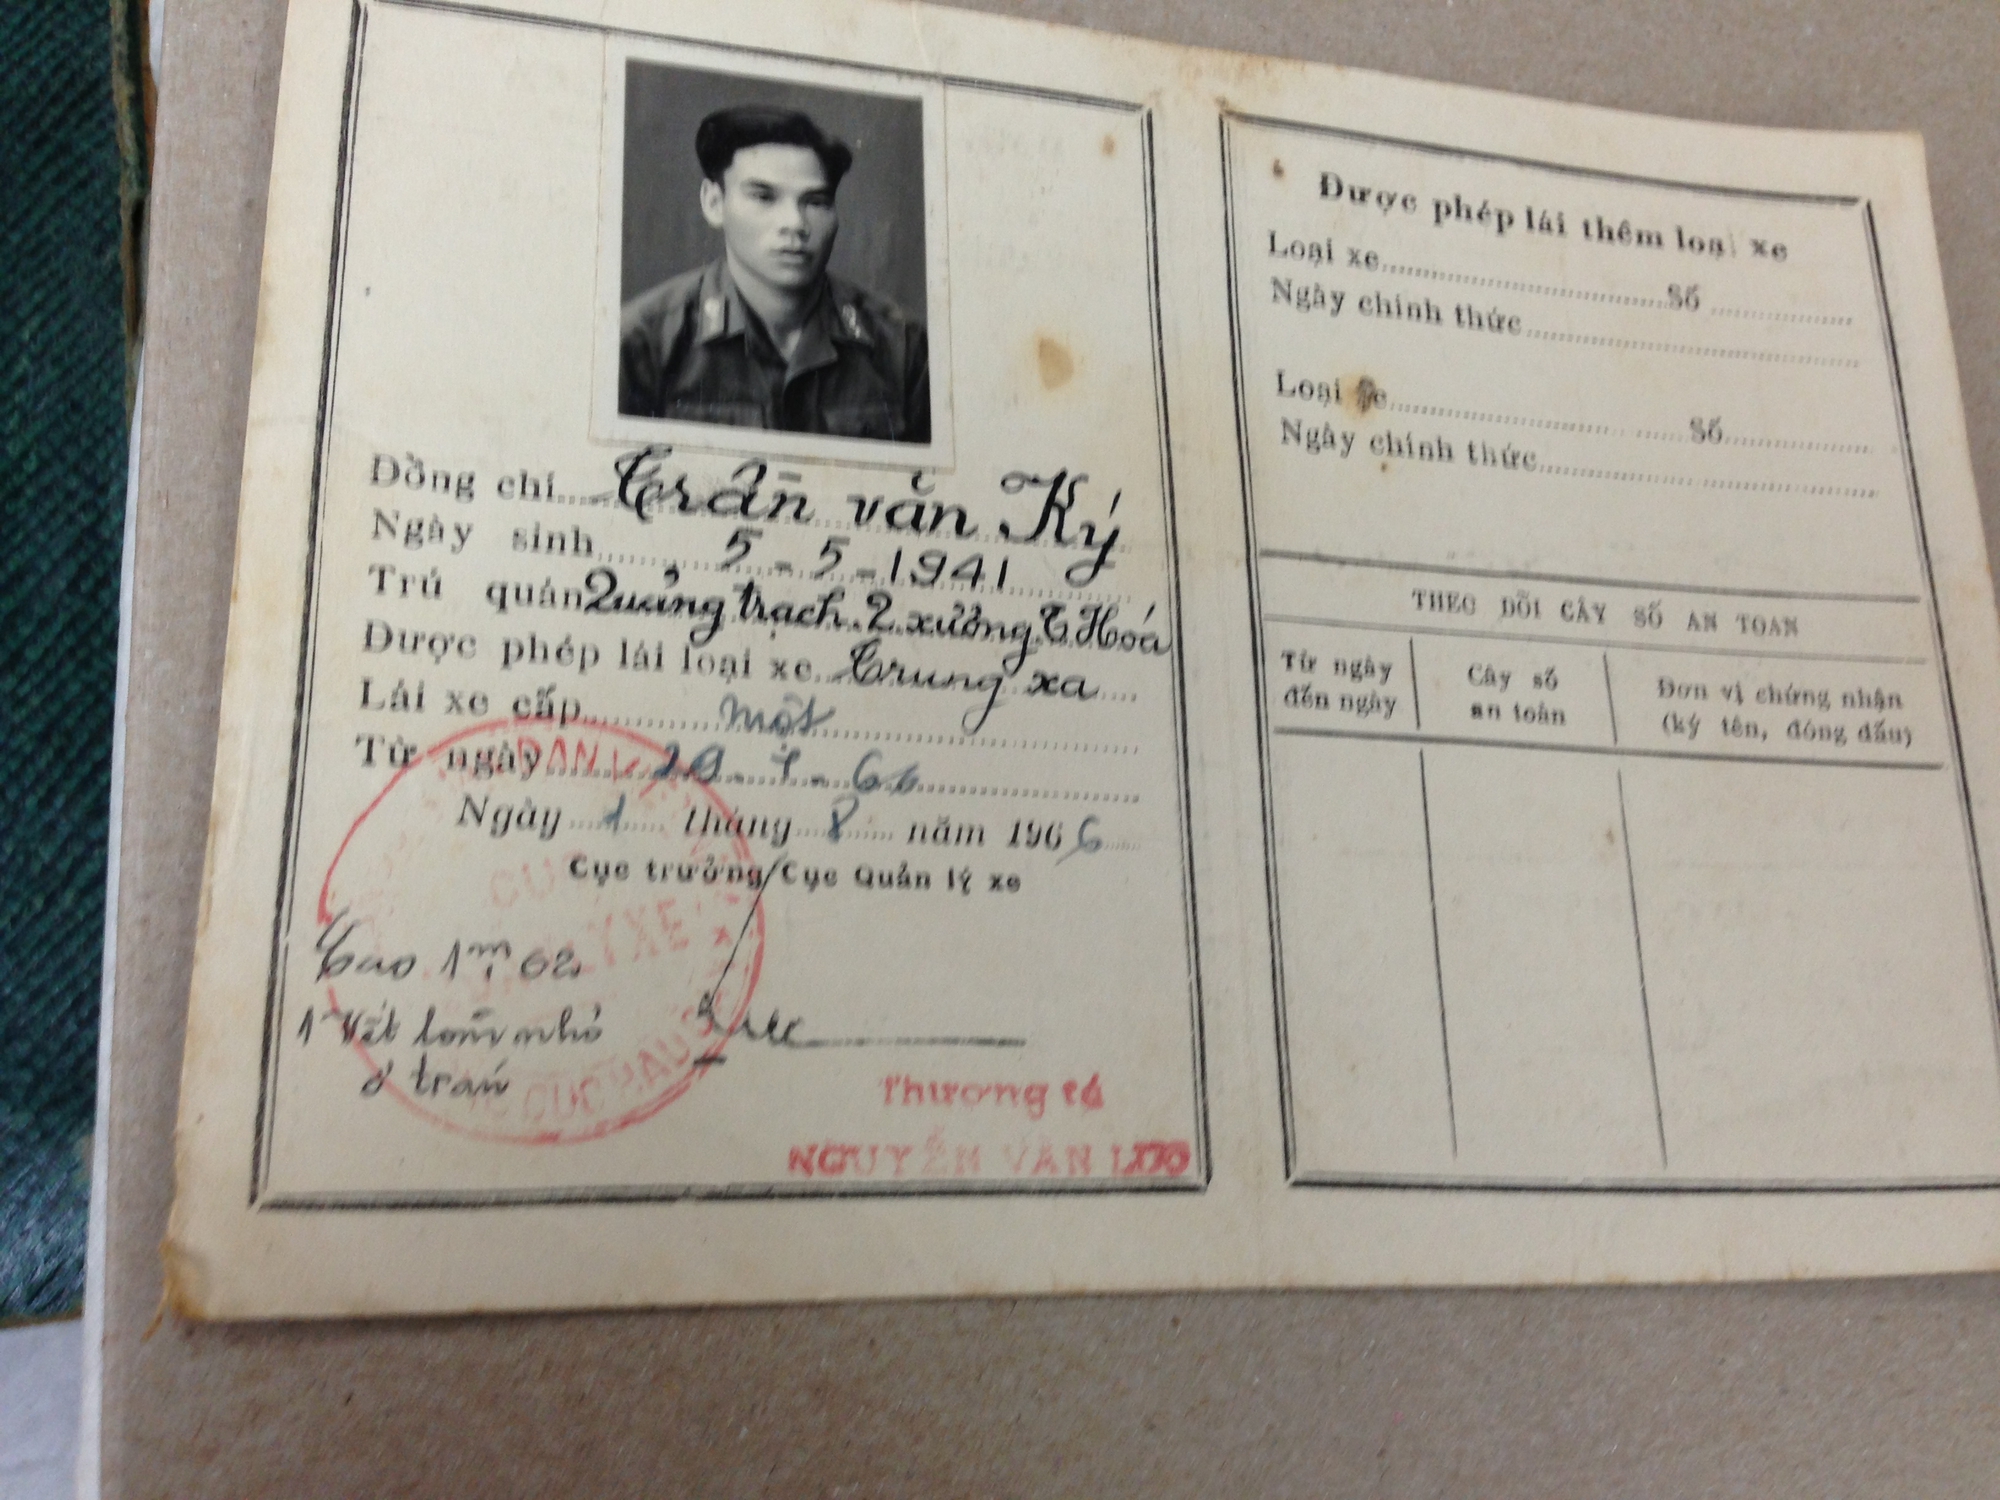 Đồng chí Trần văn Ký
Ngày sinh 5-5-1941
Trú quán Quảng trạch. 2 xưởng T Hóa
Được phép lái loại xe Trung xa
Lái xe cấp một
Từ ngày 20-7-66
Ngày 1 tháng 8 năm 1966
Cục trưởng Cục Quản lý xe
Cao 1m 62
1 Vết lõm nhỏ
ở trán
Thượng tá
NGUYỄN VĂN
Được phép lái thêm loại xe
Loại xe Số
Ngày chính thức
Loại xe Số
Ngày chính thức
THEO DÕI CÂY SỐ AN TOAN
Từ ngày đến ngày
Cây số an toàn
Đơn vị chứng nhận (ký tên, đóng dấu)